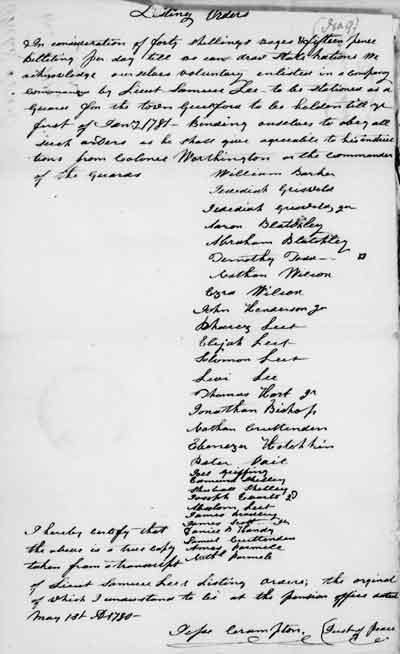 Listing Orders
(Frag)
In consideration of forty shillings wages & fifteen pence
billiting per day till we can draw State Rations we
acknowledge ourselves voluntary enlisted in a company
commanded by Lieut Samuel Lee - to be stationed as a
Guard for the town Guilford to be holden till ye
first of Janry 1781 - Binding ourselves to obey all
such orders as he shall give agreeable to his instruc
tions from Colonel Worthington or the commander
of the Guards
William Barker
Jedediah Griswold
Jedediah Griswold, Jr
Aaron Blatchley
Abraham Blatchley
Timothy Todd
Nathan Wilson
Ezra Wilson
John Henderson Jr
Pharez Leet
Elijah Leet
Solomon Leet
Levi Lee
Thomas Hart Jr
Jonathan Bishop
Nathan Cruttenden
Ebenezer Hotchkin
Peter Vail
Joel Griffing
Edmund Shelley
Shubael Shelley
Joseph
Absalom Leet
James
James Scott Jr
Janice D Handy
Samuel Cruttenden
Amos Parmele
Nathl Parmele
I hereby certify that
the above is a true copy
taken from a transcript
of Lieut Samuel Lees Listing Orders; the orginal
of which I understand to be at the pension office dated
May 1st AD 1780 -
Jesse Crampton, Just of Peace